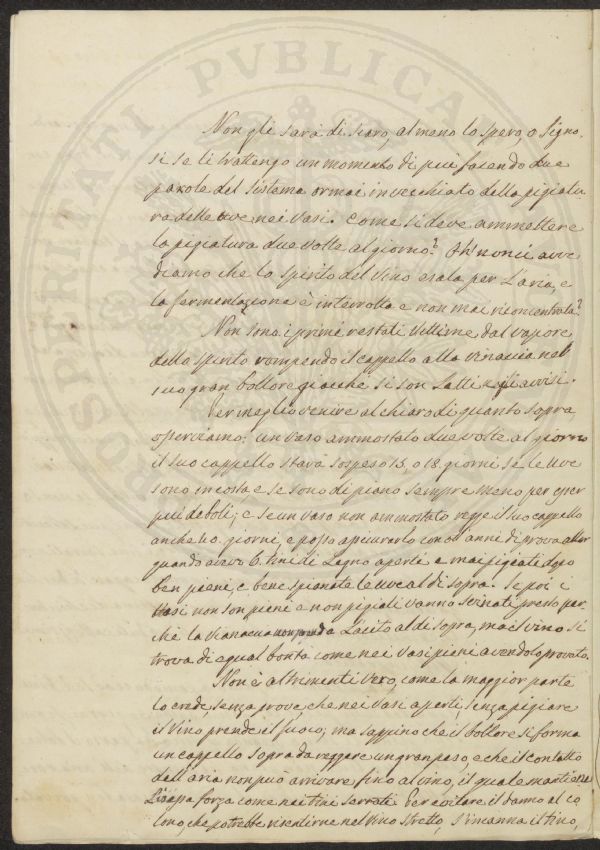 POSTERITATI PVBLICA
Non gli sarà di scaro, almeno lo spero, o Signo-
ri se li trattengo un momento di più facendo due
parole del sistema ormai invecchiato della pigiatu-
ra delle uve nei vasi. Come si deve ammettere
la pigiatura due volte al giorno? Oh! non ci avve
diamo che lo spirito del vino esala per l'aria, e
la fermentazione è interrotta e non mai riconcentrata?
Non sono i primi restati vittime dal vapore
dello spirito rompendo il cappello alla vinaccia nel
suo gran bollore giacchè si son letti negli avvisi.
Per meglio venire al chiaro di quanto sopra
osserviamo: un vaso ammostato due volte al giorno
il suo cappello starà sospeso 15, o 18 giorni se le uve
sono in costa e se sono di piano sempre meno per esser
più deboli; e se un vaso non ammostato regge il suo cappello
anche 40 giorni, e posso assicurarlo con anni di prova allor
quando avevo 6 tini di Legno aperti e mai pigiati dopo
ben pieni, e bene spianate le uve al di sopra. Se poi i
Vasi non son pieni e non pigiati vanno svinati presto per
chè la vinaccia non prenda l'acito al di sopra, ma il vino si
trova di egual bontà come nei vasi pieni avendolo provato.
Non è altrimenti vero, come la maggior parte
lo crede, senza prove, che nei vasi aperti, senza pigiare
il Vino prende il fuoco; ma sappino che il bollore si forma
un cappello sopra da reggere un gran peso, e che il contatto
dell'aria non può arrivare fino al vino, il quale mantiene
l'istessa forza come nei tini serrati. Per evitare il danno al co
lono, che potrebbe risentirne nel vino stretto, s'incanna il tino,